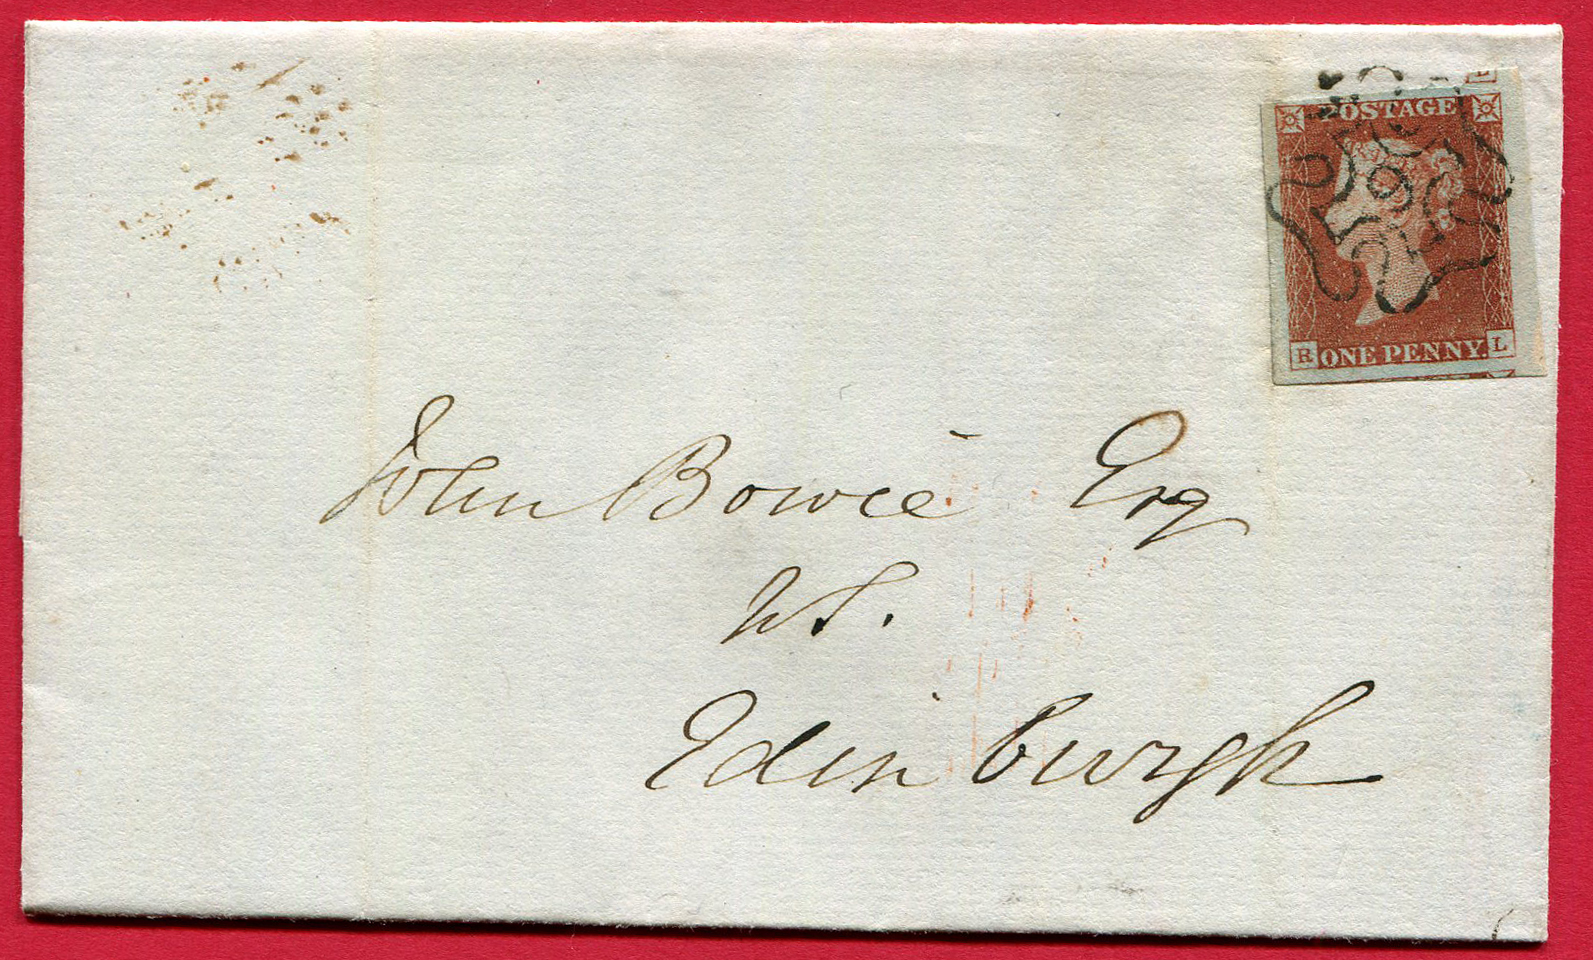 POSTAGE
9
R ONE PENNY. L
John Bowie Esq
WS.
Edinburgh